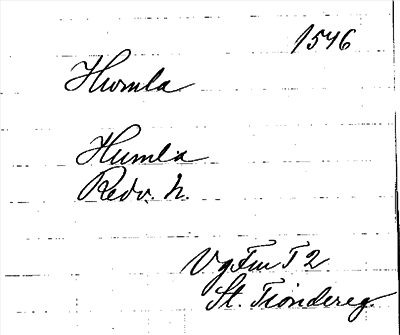 1546
Humla
Humla
Redv. h.
VgFm T 2
St. Tiondereg.